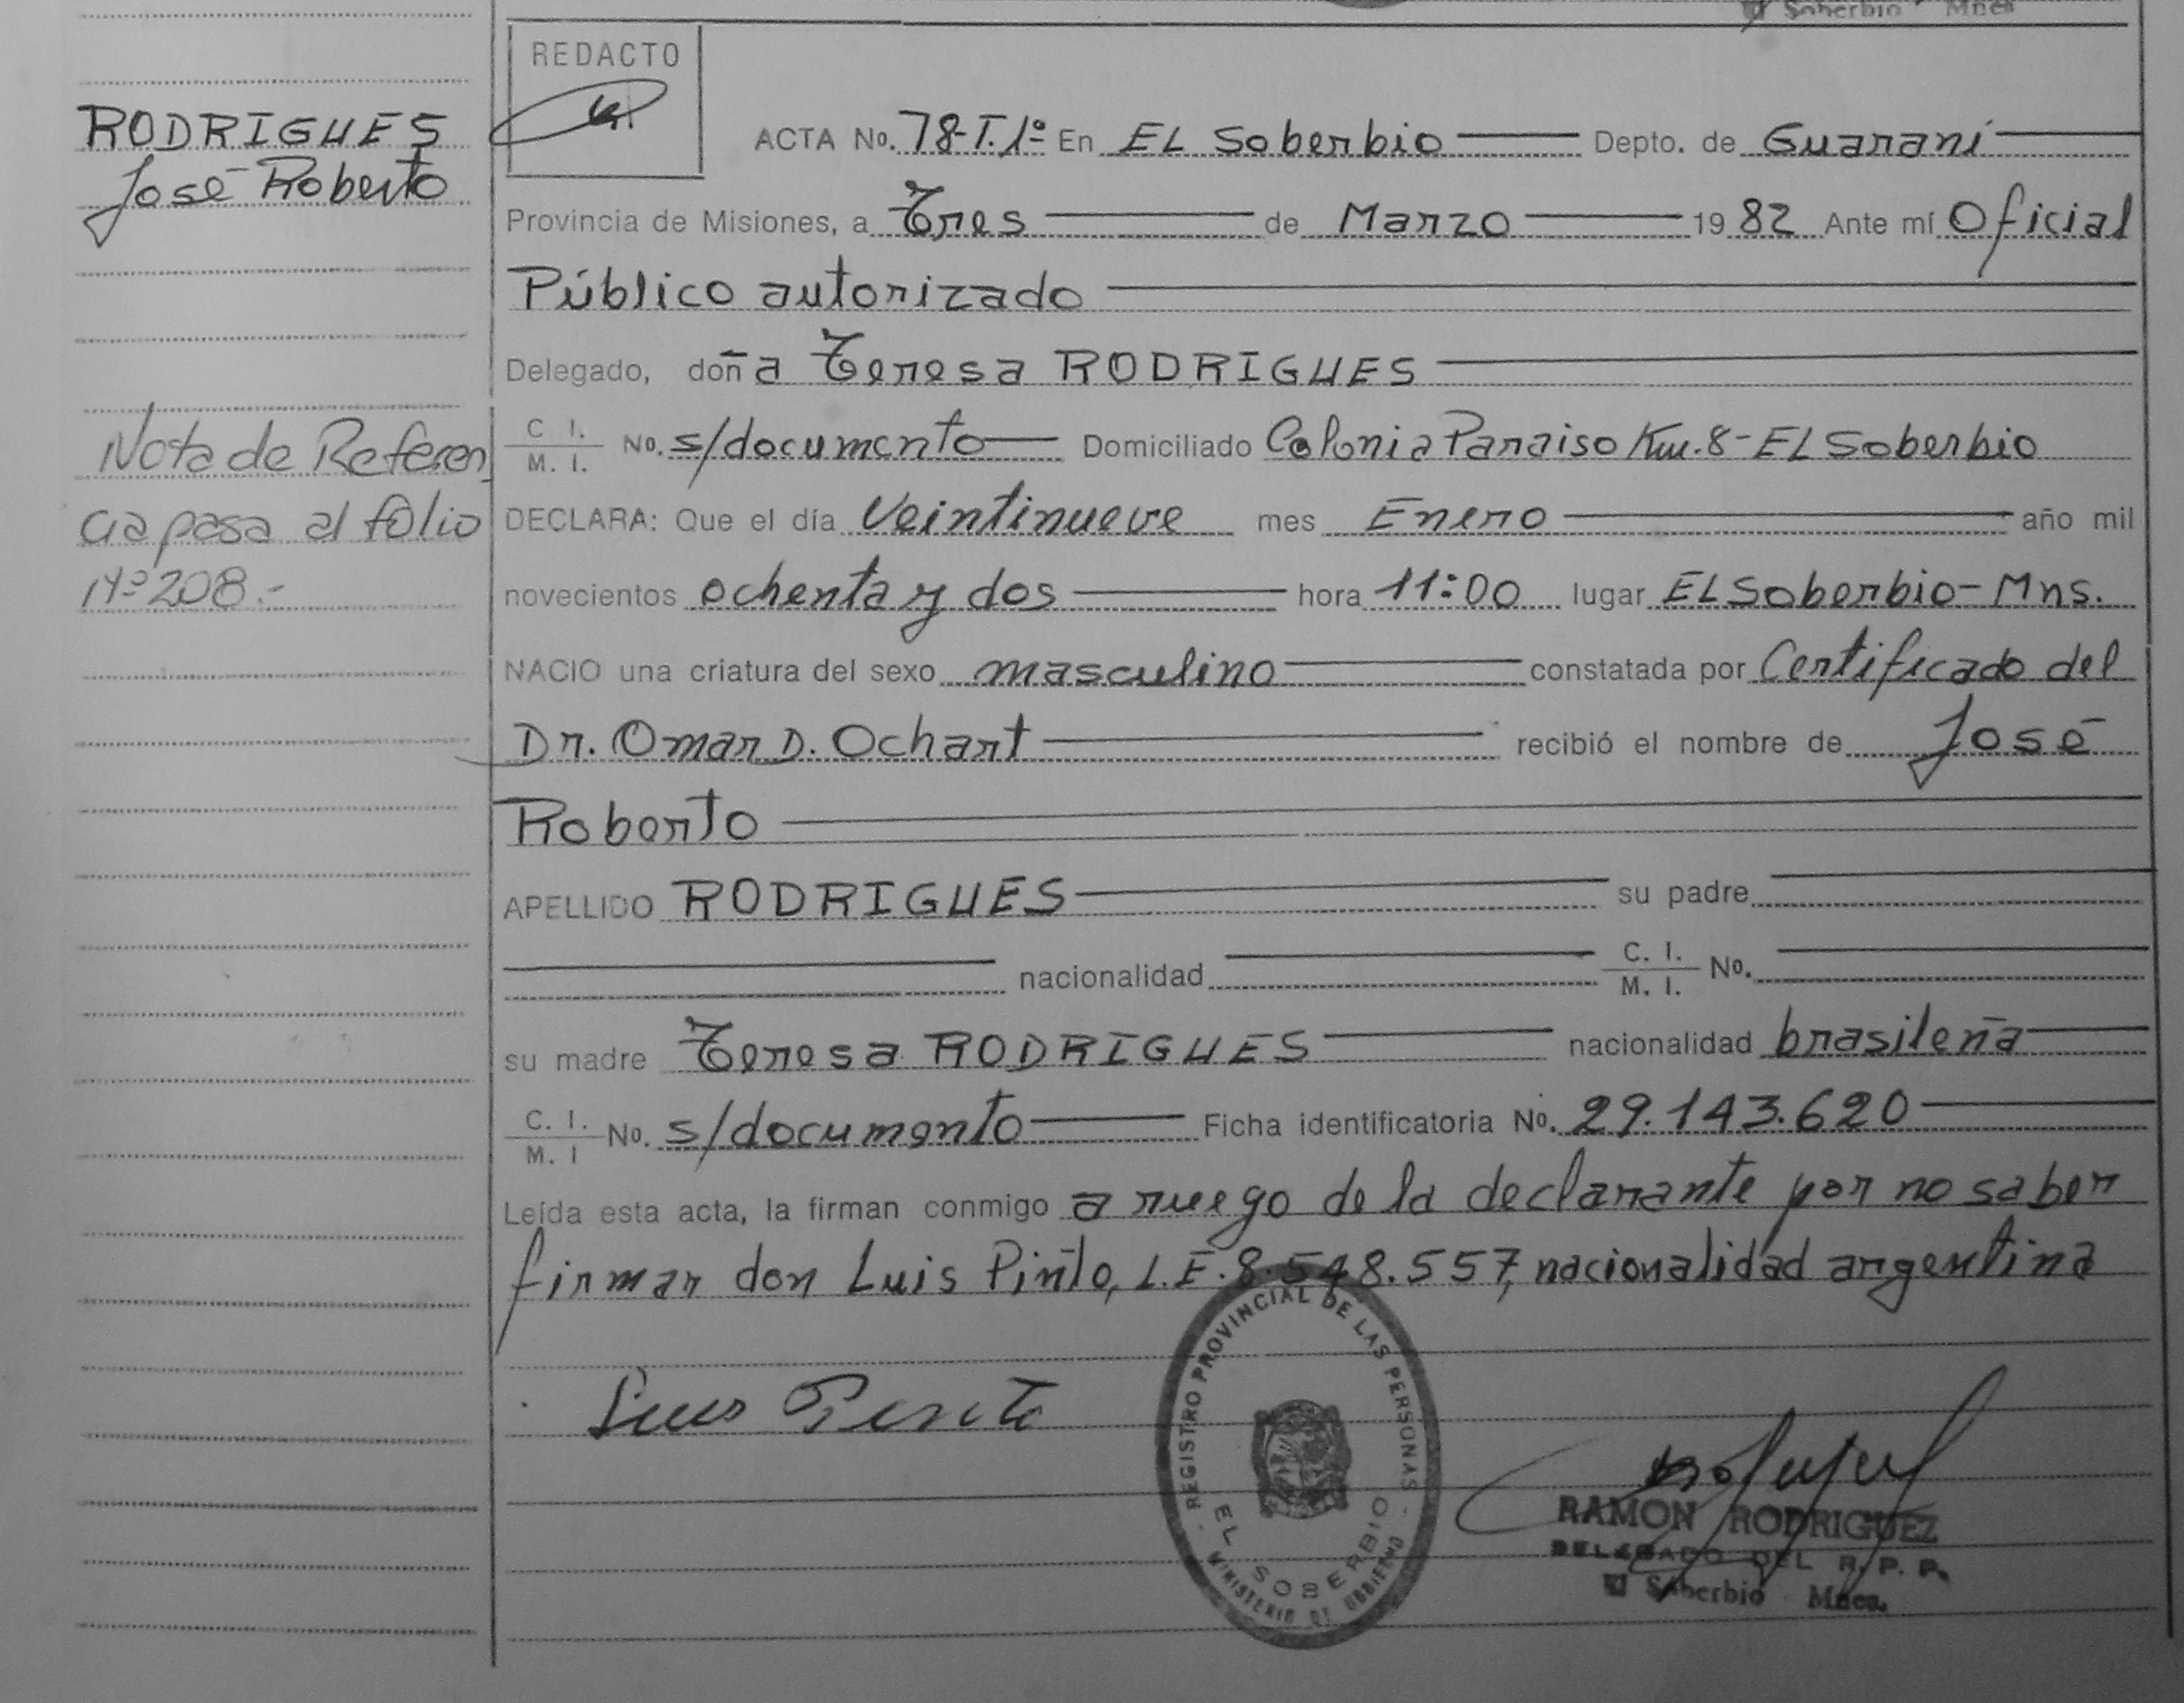 El Soberbio Mnes
REDACTO
RODRIGUES
José Roberto
ACTA No. 78-T.1º En EL Soberbio Depto. de Guaraní
Provincia de Misiones, a Tres de Marzo 1982 Ante mí Oficial
Público autorizado
Delegado, doña Teresa RODRIGUES
C I. M. I. No. s/documento Domiciliado Colonia Paraiso Km.8-EL Soberbio
Nota de Referen
cia pasa al folio
Nº 208.-
DECLARA: Que el día veintinueve mes Enero año mil
novecientos ochenta y dos hora 11:00 lugar EL Soberbio-Mns.
NACIO una criatura del sexo masculino constatada por Certificado del
Dr. Omar D. Ochart recibió el nombre de José
Roberto
APELLIDO RODRIGUES su padre
nacionalidad C. I. M. I. No.
su madre Teresa RODRIGUES nacionalidad brasileña
C. I. M. I No. s/documento Ficha identificatoria No. 29.143.620
Leída esta acta, la firman conmigo a ruego de la declarante por no saber
firmar don Luis Pinto, L.E.8.548.557, nacionalidad argentina
Luis Pinto
REGISTRO PROVINCIAL DE LAS PERSONAS
EL SOBERBIO
MINISTERIO DE GOBIERNO
RAMON RODRIGUEZ
DELEGADO DEL R. P. P.
El Soberbio Mnes.